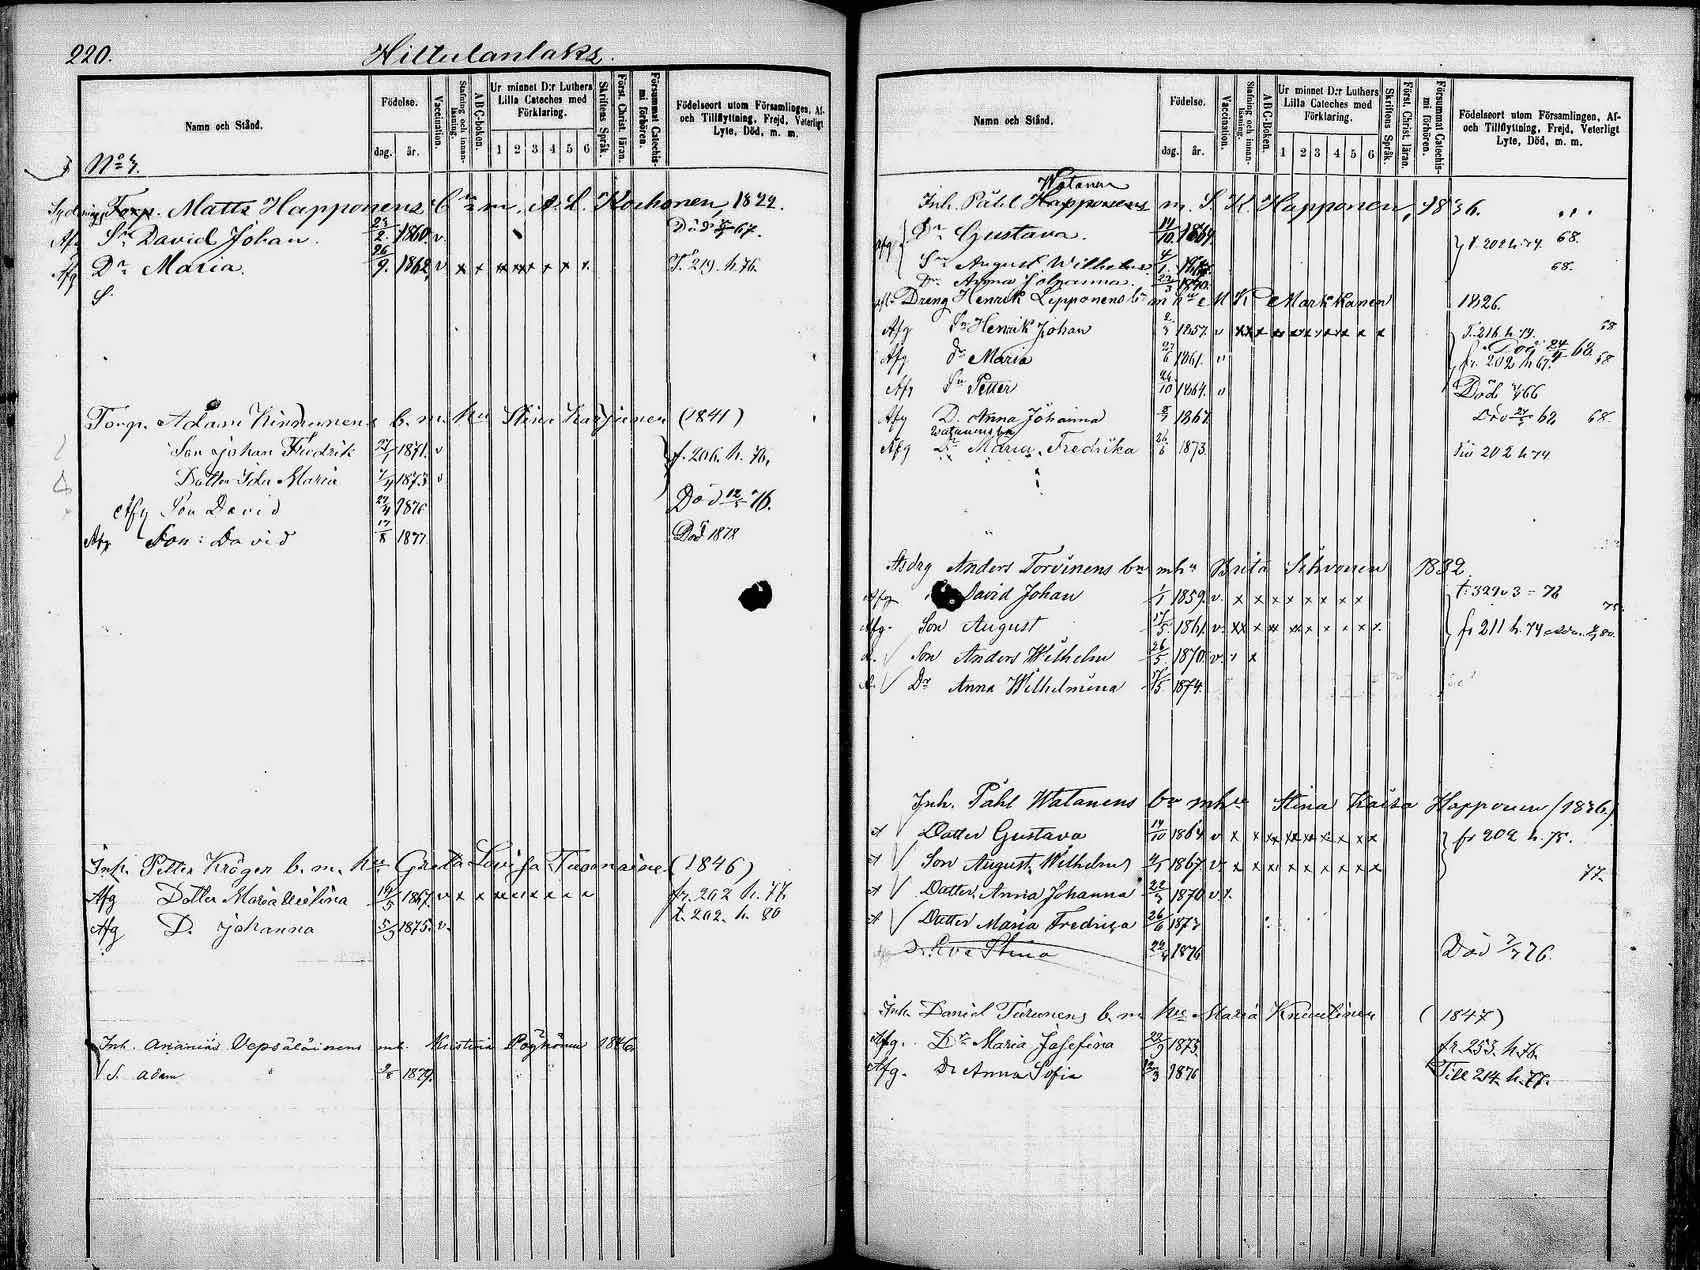 220. Hiltulanlaks.
Namn och Stånd.
Födelse.
dag. år.
Vaccination.
Stafning och innanläsning.
ABC-boken.
Ur minnet D:r Luthers Lilla Cateches med Förklaring.
1 2 3 4 5 6
Skriftens Språk.
Först. Christ. läran.
Försummat Catechismi förhören.
Födelseort utom Församlingen, Af- och Tillflyttning, Frejd, Veterligt Lyte, Död, m. m.
No 7.
Torp. Matts Happonens m. A. L. Korhonen, 1822.
Afg Sn David Johan. 23/2. 1860. v Död 67.
Afg Dr Maria. 26/9. 1862, v x x x x x x x x T. 219. h. 76.
S.
Torp. Adam Kinnunens b. m. hu Stina Karjainen (1841)
Son Johan Fredrik 1871. v fr. 206. h. 76.
Dotter Ida Maria 1873 v
Afg Son David 1876 Död 12/5 76.
Afg Son: David 17/8 1877 Död 1878
Inh. Petter Kröger b. m. hu Greta Lovisa Tuomainen (1846)
Afg Dotter Maria 1867. v x x x x x x x x fr. 202 h. 77.
Afg D. Johanna 5/3 1875. v. t. 202. h. 80
Inh. Ananias Vepsäläinens mh. Kristina Pöyhönen 1846.
S. Adam 1879.
Namn och Stånd.
Födelse.
dag. år.
Vaccination.
Stafning och innanläsning.
ABC-Boken.
Ur minnet D:r Luthers Lilla Cateches med Förklaring.
1 2 3 4 5 6
Skriftens Språk.
Först. Christ. läran.
Försummat Catechismi förhören.
Födelseort utom Församlingen, Af- och Tillflyttning, Frejd, Veterligt Lyte, Död, m. m.
Watanen
Inh. Påhl Happonens m. S. K. Happonen, 1836.
Dr Gustava. 14/10. 1864. t. 202 h. 74. 68.
Sn August Wilhelm 68.
Dr Anna Johanna 22/3 1870.
Dreng Henrik Lipponens bn m hu M K Markkanen 1826.
Afg Sn Henrik Johan 1857. v x x x x x x x x x T. 216 h. 74. 68
Afg Dr Maria 1861. v Död 24/4 68. fr. 202 h 67. 68
Afg Sn Petter 1864. v Död 66
Afg D. Anna Johanna 1867. Död 68.
Afg Dr Maria Fredrika 26/6 1873. Till 202 h 74
Anders Torvinens bn m hu Brita Sihvonen 1832.
Afg David Johan 1/1 1859. v. x x x x x x x x t. 329 v 3 = 78
Afg. Son August 17/5. 1861. v. x x x x x x x x x fr 211 h. 74
Son Anders Wilhelm 26/5. 1870. v. x
Dr Anna Wilhelmina 17/5 1874.
Inh. Påhl Watanens bn mhu Stina Kaisa Happonen (1836)
Dotter Gustava 14/10 1864 v x x x x x x x x fr 202 h. 75.
Son August Wilhelm 4/1 1867. v. x x x x x x x x 77.
Dotter Anna Johanna 22/3 1870 v x.
Dotter Maria Fredrika 26/6 1873
D. Eva Stina 22/4 1876 Död 7/7 76.
Inh. Daniel Turunens b. m hu Maria Knuutinen (1847)
Afg. Dr Maria Josefina 22/3 1873. fr. 253. h. 76.
Afg. Dr Anna Sofia 1876 Till 214 h. 77.